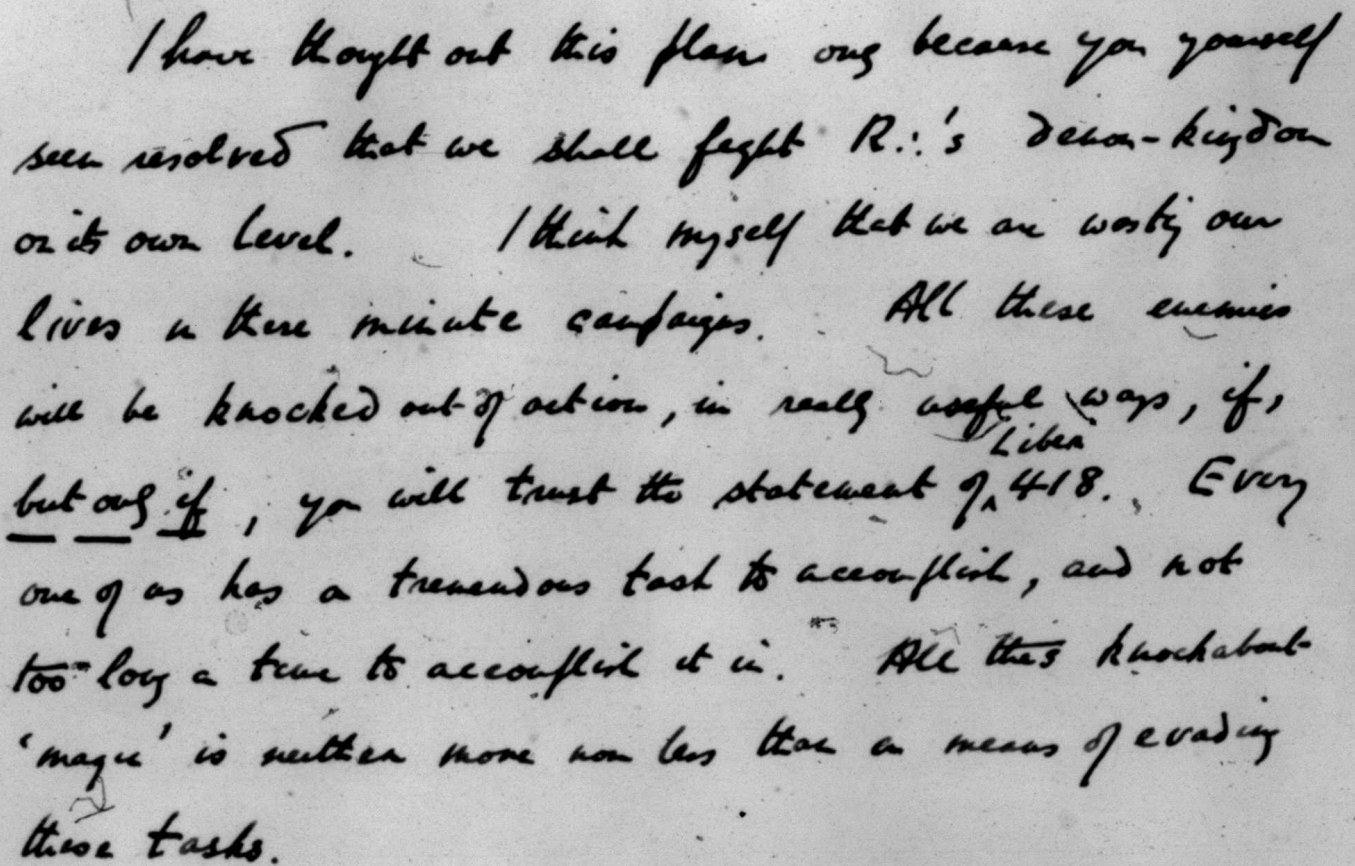 I have thought out this plan only because you yourself
seem resolved that we shall fight R∴'s demon-kingdom
on its own level. I think myself that we are wasting our
lives in these minute campaigns. All these enemies
will be knocked out of action, in really useful ways, if,
but only if, you will trust the statement of Liber 418. Every
one of us has a tremendous task to accomplish, and not
too long a time to accomplish it in. All this knockabout
'magic' is neither more nor less than a means of evading
these tasks.